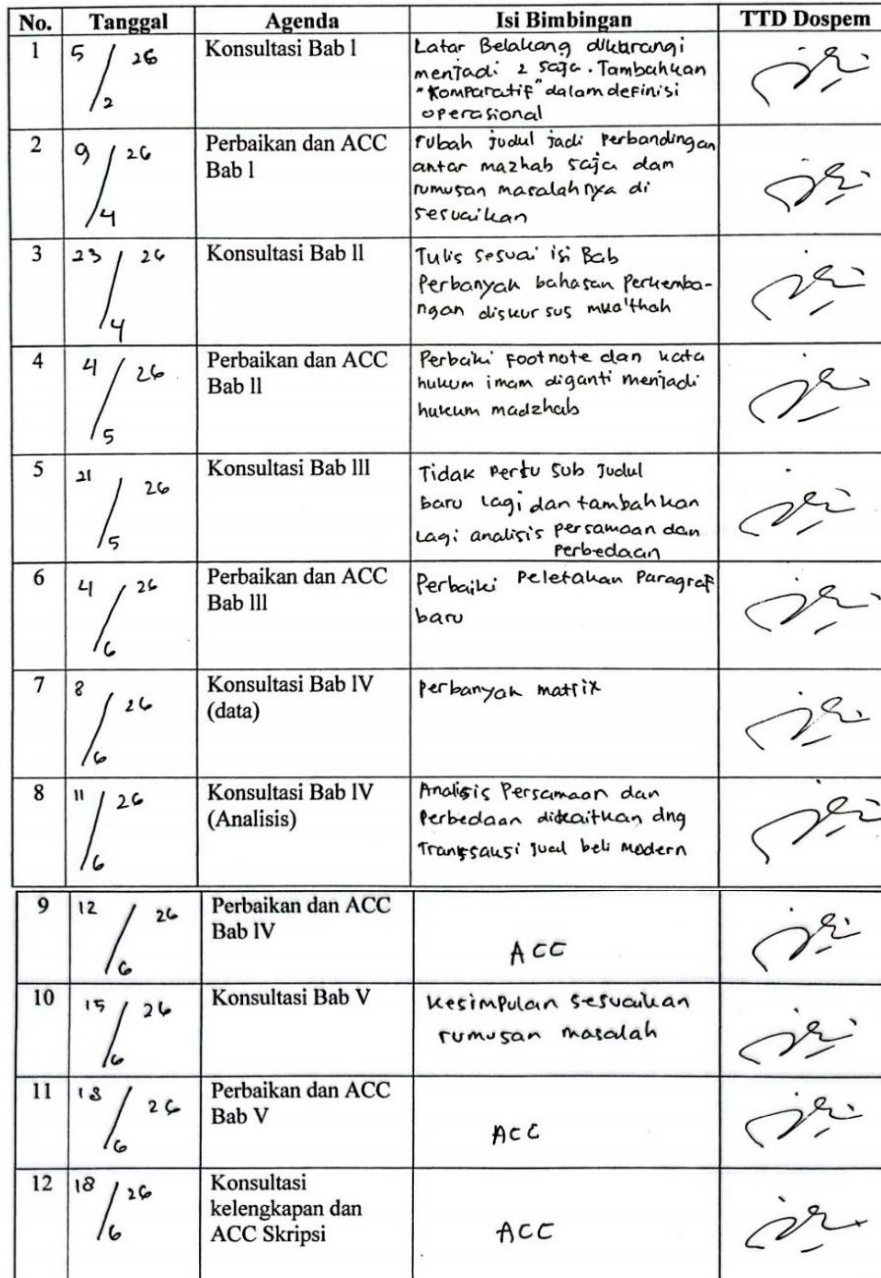 No. Tanggal Agenda Isi Bimbingan TTD Dospem
1 5/2 26 Konsultasi Bab l Latar Belakang dikurangi
menjadi 2 saja. Tambahkan
"Komparatif" dalam definisi
operasional
2 9/4 26 Perbaikan dan ACC rubah judul jadi Perbandingan
Bab l antar mazhab saja dam
rumusan masalahnya di
sesuaikan
3 23/4 26 Konsultasi Bab ll Tulis sesuai isi Bab
Perbanyak bahasan Perkemba-
ngan diskursus mua'thah
4 4/5 26 Perbaikan dan ACC Perbaiki Footnote dan kata
Bab ll hukum imam diganti menjadi
hukum madzhab
5 21/5 26 Konsultasi Bab lll Tidak Perlu Sub Judul
baru lagi dan tambahkan
Lagi analisis persamaan dan
Perbedaan
6 4/6 26 Perbaikan dan ACC Perbaiki Peletakan Paragraf
Bab lll baru
7 8/6 26 Konsultasi Bab lV Perbanyak matrix
(data)
8 11/6 26 Konsultasi Bab lV Analisis Persamaan dan
(Analisis) Perbedaan dikaitkan dng
Transsaksi jual beli Modern
9 12/6 26 Perbaikan dan ACC
Bab lV ACC
10 15/6 26 Konsultasi Bab V Kesimpulan sesuaikan
rumusan masalah
11 18/6 26 Perbaikan dan ACC
Bab V ACC
12 18/6 26 Konsultasi
kelengkapan dan
ACC Skripsi ACC